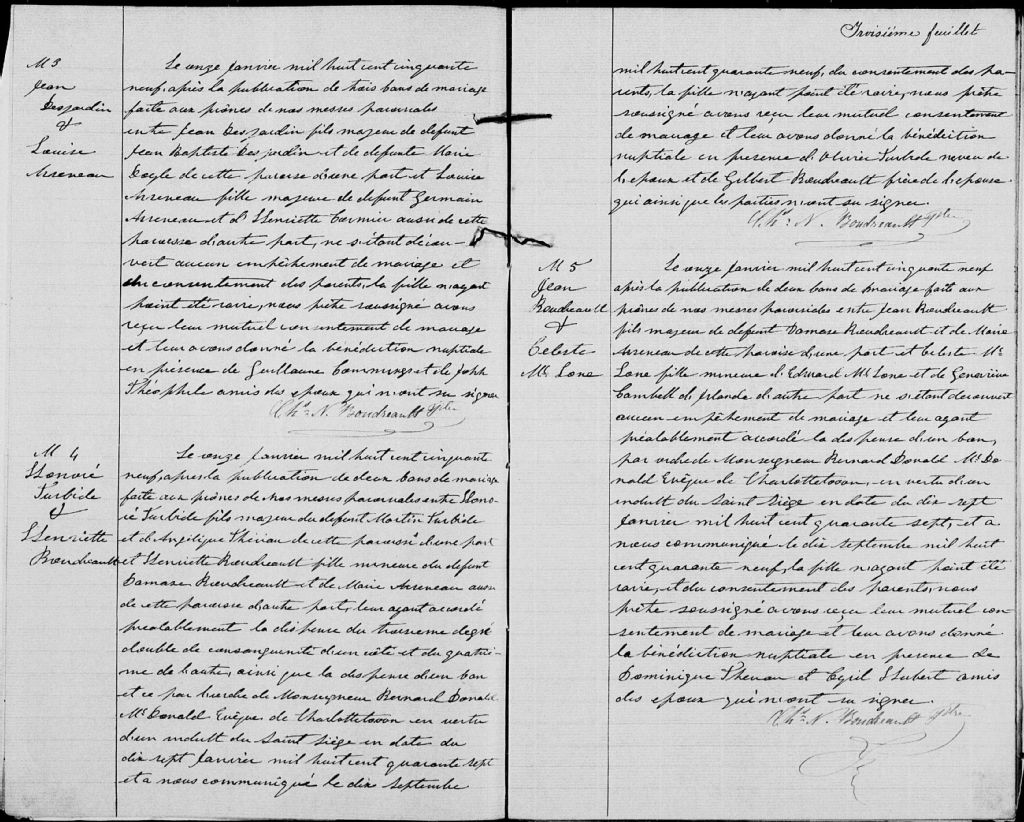 M 3
Jean
Desjardin
&
Louise
Arseneau
Le onze Janvier mil huit cent cinquante
neuf, après la publication de trois bans de mariage
faite aux prônes de nos messes paroissiales
entre Jean Desjardin fils majeur de defunt
Jean Baptiste Desjardin et de defunte Marie
Doyle de cette paroisse d'une part et Louise
Arseneau fille majeure de defunt Germain
Arseneau et d'Henriette Cormier aussi de cette
paroisse d'autre part, ne s'étant décou-
vert aucun empêchement de mariage et
du consentement des parents, la fille n'ayant
point été raire, nous prêtre soussigné avons
reçu leur mutuel consentement de mariage
et leur avons donné la bénédiction nuptiale
en présence de Guillaume Cummings et de John
Théophile amis des epoux qui n'ont su signer
Chs. N. Boudreault Ptre
M 4
Honoré
Turbide
&
Henriette
Boudreault
Le onze Janvier mil huit cent cinquante
neuf, apres la publication de deux bans de mariage
faite aux prônes de nos messes paroissiales entre Hono-
ré Turbide fils majeur du defunt Martin Turbide
et d'Angelique Thériau de cette paroisse d'une part
et Henriette Boudreault fille mineure du defunt
Damase Boudreault et de Marie Arseneau aussi
de cette paroisse d'autre part, leur ayant accordé
prealablement la dispense du troisieme degré
double de consanguinité d'un côté et du quatrie-
me de l'autre, ainsi que la dispense d'un ban
et ce par l'ordre de Monseigneur Bernard Donald
Mc Donald Evêque de Charlottetown en vertu
d'un indult du Saint Siège en date du
dix sept Janvier mil huit cent quarante sept
et a nous communiqué le dix Septembre
Troisiéme feuillet
mil huit cent quarante neuf, du consentement des pa-
rents, la fille n'ayant point été raire, nous prêtre
soussigné avons reçu leur mutuel consentement
de mariage et leur avons donné la bénédiction
nuptiale en presence d'Olivier Turbide neveu de
l'epoux et de Gilbert Boudreault frère de l'epouse
qui ainsi que les parties n'ont su signer.
Chs. N. Boudreault Ptre
M 5
Jean
Boudreault
&
Celeste
Mc Lone
Le onze Janvier mil huit cent cinquante neuf
après la publication de deux bans de mariage faite aux
prônes de nos messes paroissiales entre Jean Boudreault
fils majeur de defunt Damase Boudreault et de Marie
Arseneau de cette paroisse d'une part et Celeste Mc
Lone fille mineure d'Edward Mc Lone et de Geneviève
Cambell d'Irlande d'autre part ne s'étant decouvert
aucun empêchement de mariage et leur ayant
préalablement accordé la dispense d'un ban,
par ordre de Monseigneur Bernard Donald Mc Do-
nald Evêque de Charlottetown, en vertu d'un
indult du Saint Siège en date du dix sept
Janvier mil huit cent quarante sept, et a
nous communiqué le dix septembre mil huit
cent quarante neuf, la fille n'ayant point été
raire, et du consentement des parents, nous
prêtre soussigné avons reçu leur mutuel con-
sentement de mariage et leur avons donné
la bénédiction nuptiale en presence de
Dominique Theriau et Cyril Hubert amis
des epoux qui n'ont su signer.
Chs. N. Boudreault Ptre